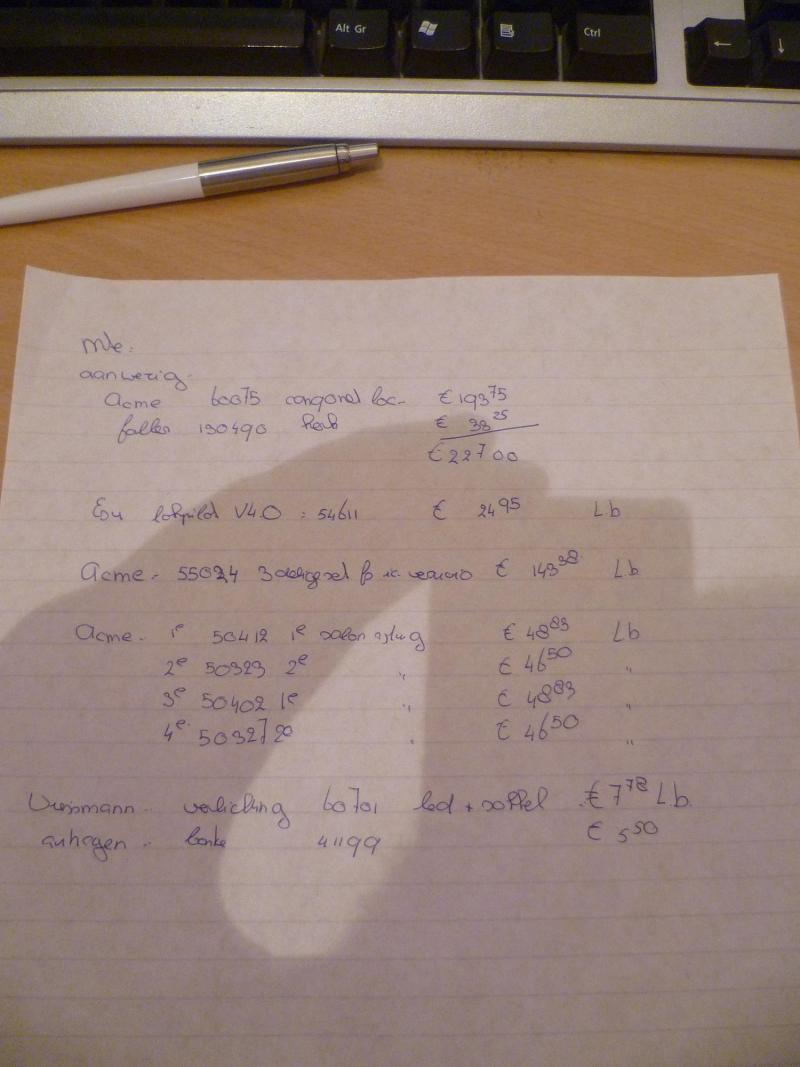 Alt Gr
Ctrl
← ↓
Mte:
aanwezig.
Acme 60075 cargoned loc. € 193 75
faller 130490 kerk € 33 25
€ 227 00
Esu lokpilot V4.0 : 54611 € 24 95 Lb
Acme. 55024 3 delige set € 143 38 Lb
Acme. 1e 50412 1e € 48 83 Lb
2e 50323 2e " € 46 50 "
3e 50402 1e " € 48 83 "
4e 50327 2e " € 46 50 "
Viessmann. verlichting 60701 led + soffel € 7 78 Lb.
auhagen. banke 41199 € 5 50